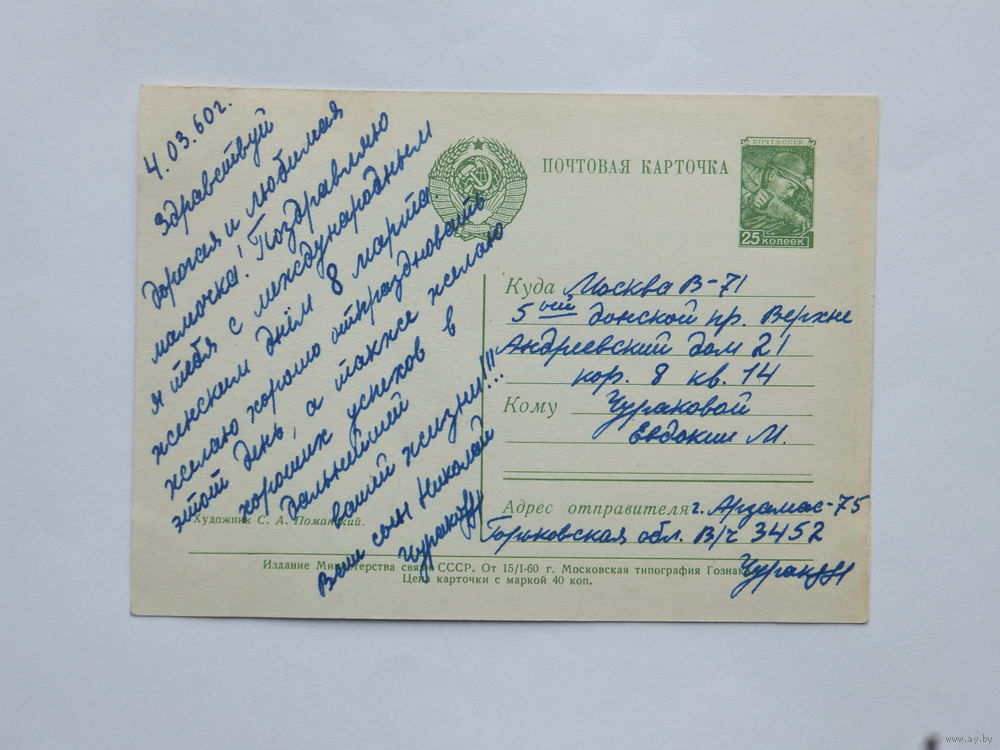 4.03.60г.
Здравствуй
дорогая и любимая
мамочка! Поздравляю
я тебя с международным
женским днём 8 марта.
желаю хорошо отпраздновать
этот день, а также желаю
хороших успехов в
дальнейшей
вашей жизни!!!...
Ваш сын Николай
Чураков
ПОЧТОВАЯ КАРТОЧКА
ПОЧТА СССР
25 копеек
Куда Москва В-71
5ый донской пр. Верхне
Андреевский дом 21
кор. 8 кв. 14
Кому Чураковой
Евдокии М.
Адрес отправителя г. Арзамас-75
Горьковская обл. В/ч 3452
Чураков
Художник С. А. Поманский.
Издание Министерства связи СССР. От 15/I-60 г. Московская типография Гознака
Цена карточки с маркой 40 коп.
www.ay.by